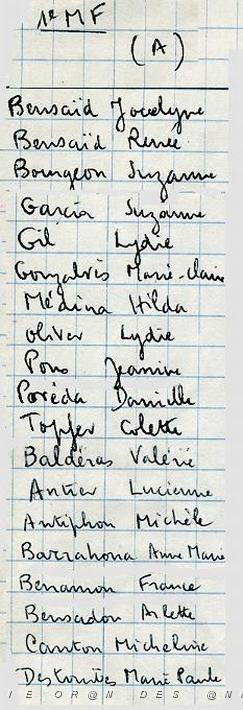 1e MF
(A)
Bensaïd Jocelyne
Bensaïd Renée
Bourgeon Suzanne
Garcia Suzanne
Gil Lydie
Gonzalvès Marie-Claire
Médina Hilda
Oliver Lydie
Pons Jeannine
Poréda Danielle
Topfer Colette
Baldéras Valérie
Antier Lucienne
Antiphon Michèle
Barrahona Anne Marie
Benamon France
Bensadon Arlette
Canton Micheline
Destouités Marie Paule
I E O R @ N D E S @ N I